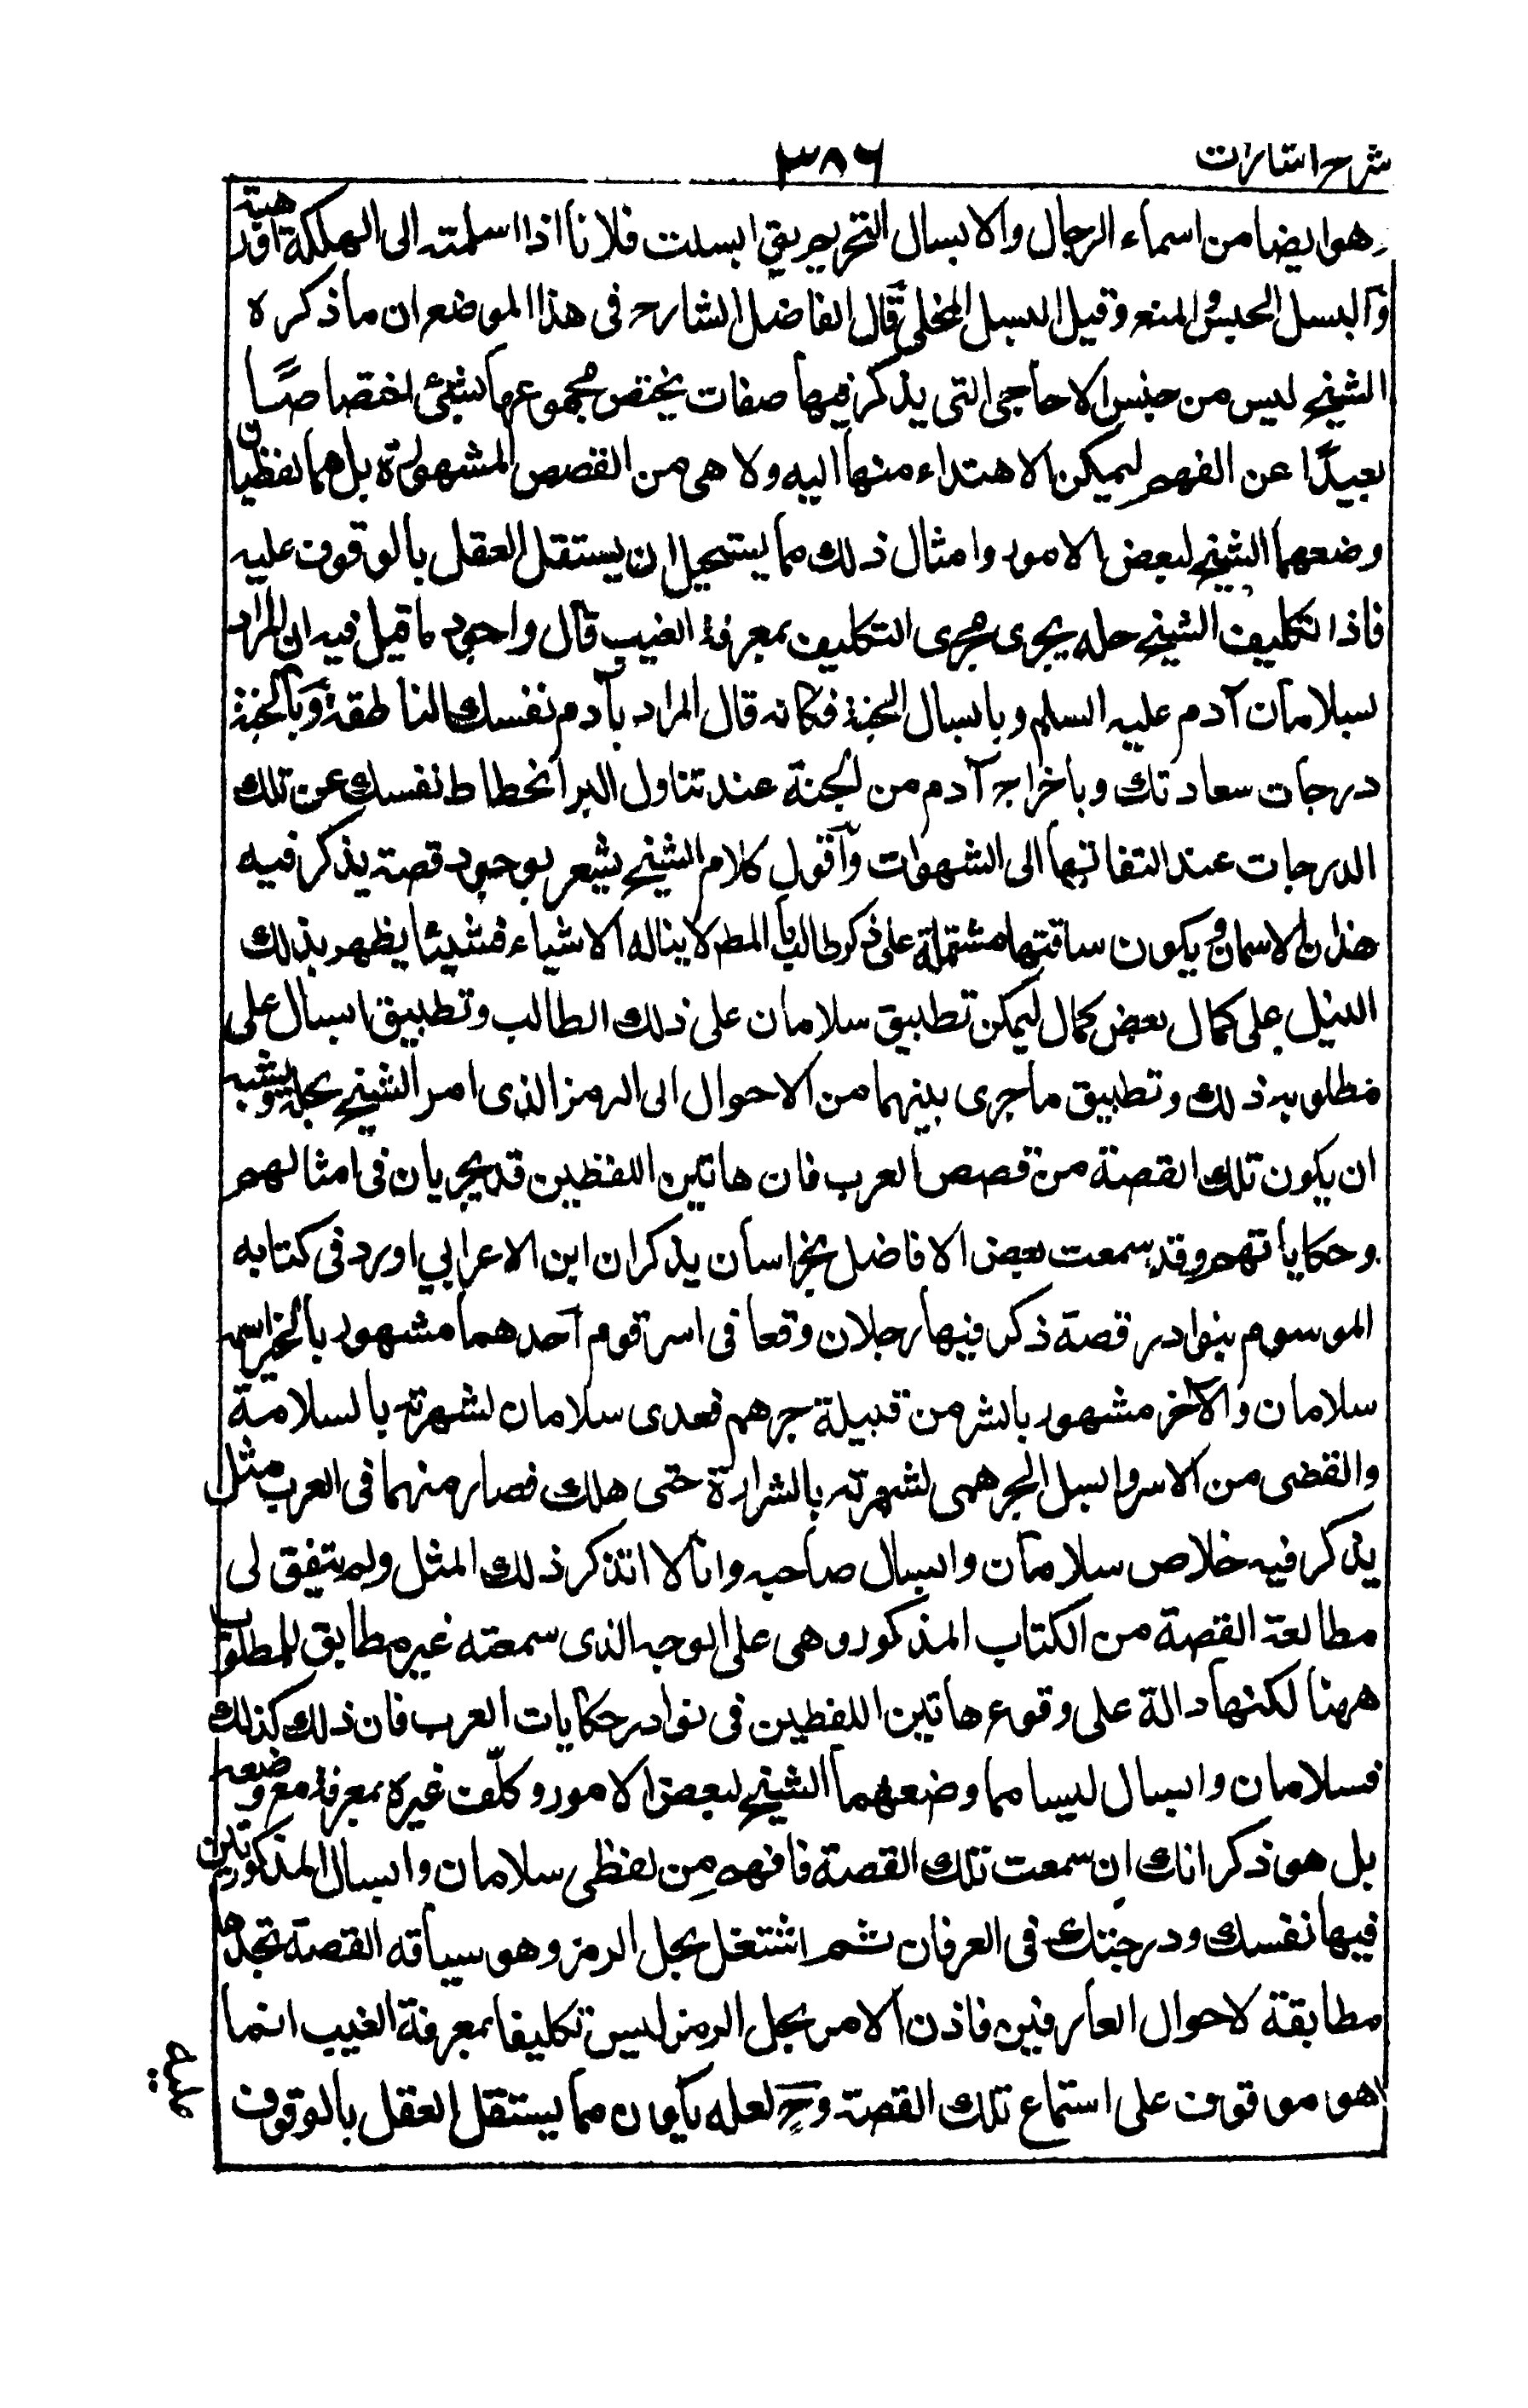 شرح اشارات
٣٨٦
وهو ايضا من اسماء الرجال والابسال التحريم يق ابسلت فلانا اذا اسلمته الى الهلكة او رهنته
والبسل الحبس والمنع وقيل البسل المخلى قال الفاضل الشارح فى هذا الموضع ان ما ذكره
الشيخ ليس من جنس الاحاجى التى يذكر فيها صفات يختص مجموعها بشئ اختصاصًا
بعيدًا عن الفهم ليمكن الاهتداء منها اليه ولا هى من القصص المشهورة بل هما لفظيان
وضعهما الشيخ لبعض الامور وامثال ذلك مما يستحيل ان يستقل العقل بالوقوف عليه
فاذا تكليف الشيخ حله يجرى مجرى التكليف بمعرفة الغيب قال واجود ما قيل فيه ان المراد
بسلامان آدم عليه السلم وبابسال الجنة فكانه قال المراد بآدم نفسك الناطقة وبالجنة
درجات سعادتك وباخراج آدم من الجنة عند تناول البر انحطاط نفسك عن تلك
الدرجات عند التفاتها الى الشهوات وآقول كلام الشيخ يشعر بوجود قصة يذكر فيه
هذان الاسمان ويكون ساقتها مشتملة على ذكر طالب ما لمط لا يناله الا شياء فشيئا يظهر بذلك
النيل على كمال بعض كمال ليمكن تطبيق سلامان على ذلك الطالب وتطبيق ابسال على
مطلوبه ذلك وتطبيق ما جرى بينهما من الاحوال الى الرمز الذى امر الشيخ بحله ويشبه
ان يكون تلك القصة من قصص العرب فان هاتين اللفظين قد يجريان فى امثالهم
وحكاياتهم وقد سمعت بعض الافاضل بخراسان يذكر ان ابن الاعرابي اورد فى كتابه
الموسوم بنوادر قصة ذكر فيها رجلان وقعا فى اسر قوم آحدهما مشهور بالخير اسمه
سلامان والآخر مشهور بالشر من قبيلة جرهم ففدى سلامان لشهرته بالسلامة
وانقضى من الاسر وابسل الجرهمى لشهرته بالشرارة حتى هلك فصار منهما فى العرب مثل
يذكر فيه خلاص سلامان وابسال صاحبه وانا لا اتذكر ذلك المثل ولم يتفق لى
مطالعة القصة من الكتاب المذكور وهى على الوجه الذى سمعته غير مطابق للمطلوب
ههنا لكنها دالة على وقوع هاتين اللفظين فى نوادر حكايات العرب فان ذلك كذلك
فسلامان وابسال ليسا مما وضعهما الشيخ لبعض الامور وكلّف غيره بمعرفة مع وضعه
بل هو ذكر انك ان سمعت تلك القصة فافهم من لفظى سلامان وابسال المذكورتين
فيها نفسك ودرجتك فى العرفان ثم اشتغل بحل الرمز وهو سياقه القصة تجدها
مطابقة لاحوال العارفين فاذن الامر بحل الرمز ليس تكليفا بمعرفة الغيب انما
هو موقوف على استماع تلك القصة وح لعله يكون مما يستقل العقل بالوقوف
عليه